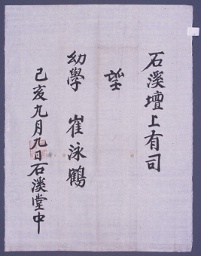 石溪壇上有司
望
幼學 崔泳鶴
己亥九月九日石溪堂中